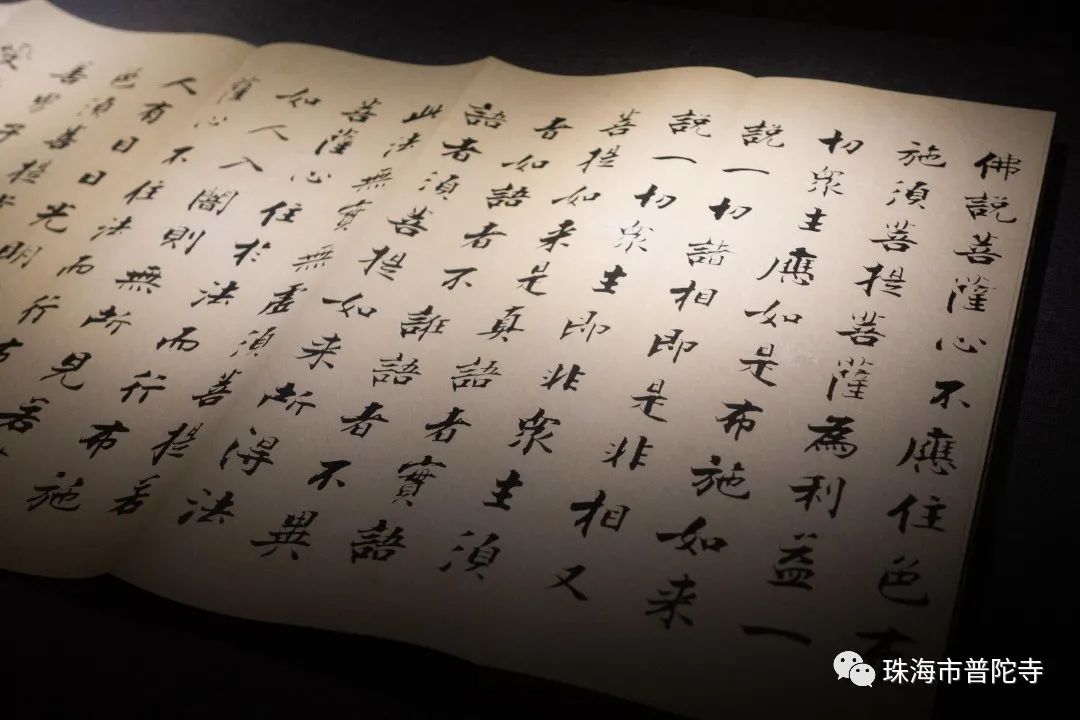 佛說菩薩心不應住色布
施須菩提菩薩為利益一
切眾生應如是布施如来
說一切諸相即是非相又
說一切眾生即非眾生須
菩提如来是真語者實語
者如語者不誑語者不異
語者須菩提如来所得法
此法無實無虛須菩提若
菩薩心住於法而行布施
如人入闇則無所見若
薩心不住法而行布
人有目日光明
色須菩提
善男子
珠海市普陀寺